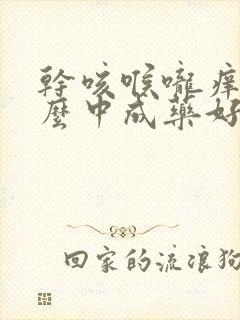 幹咳喉嚨癢
麼中成藥好
回家的流浪狗